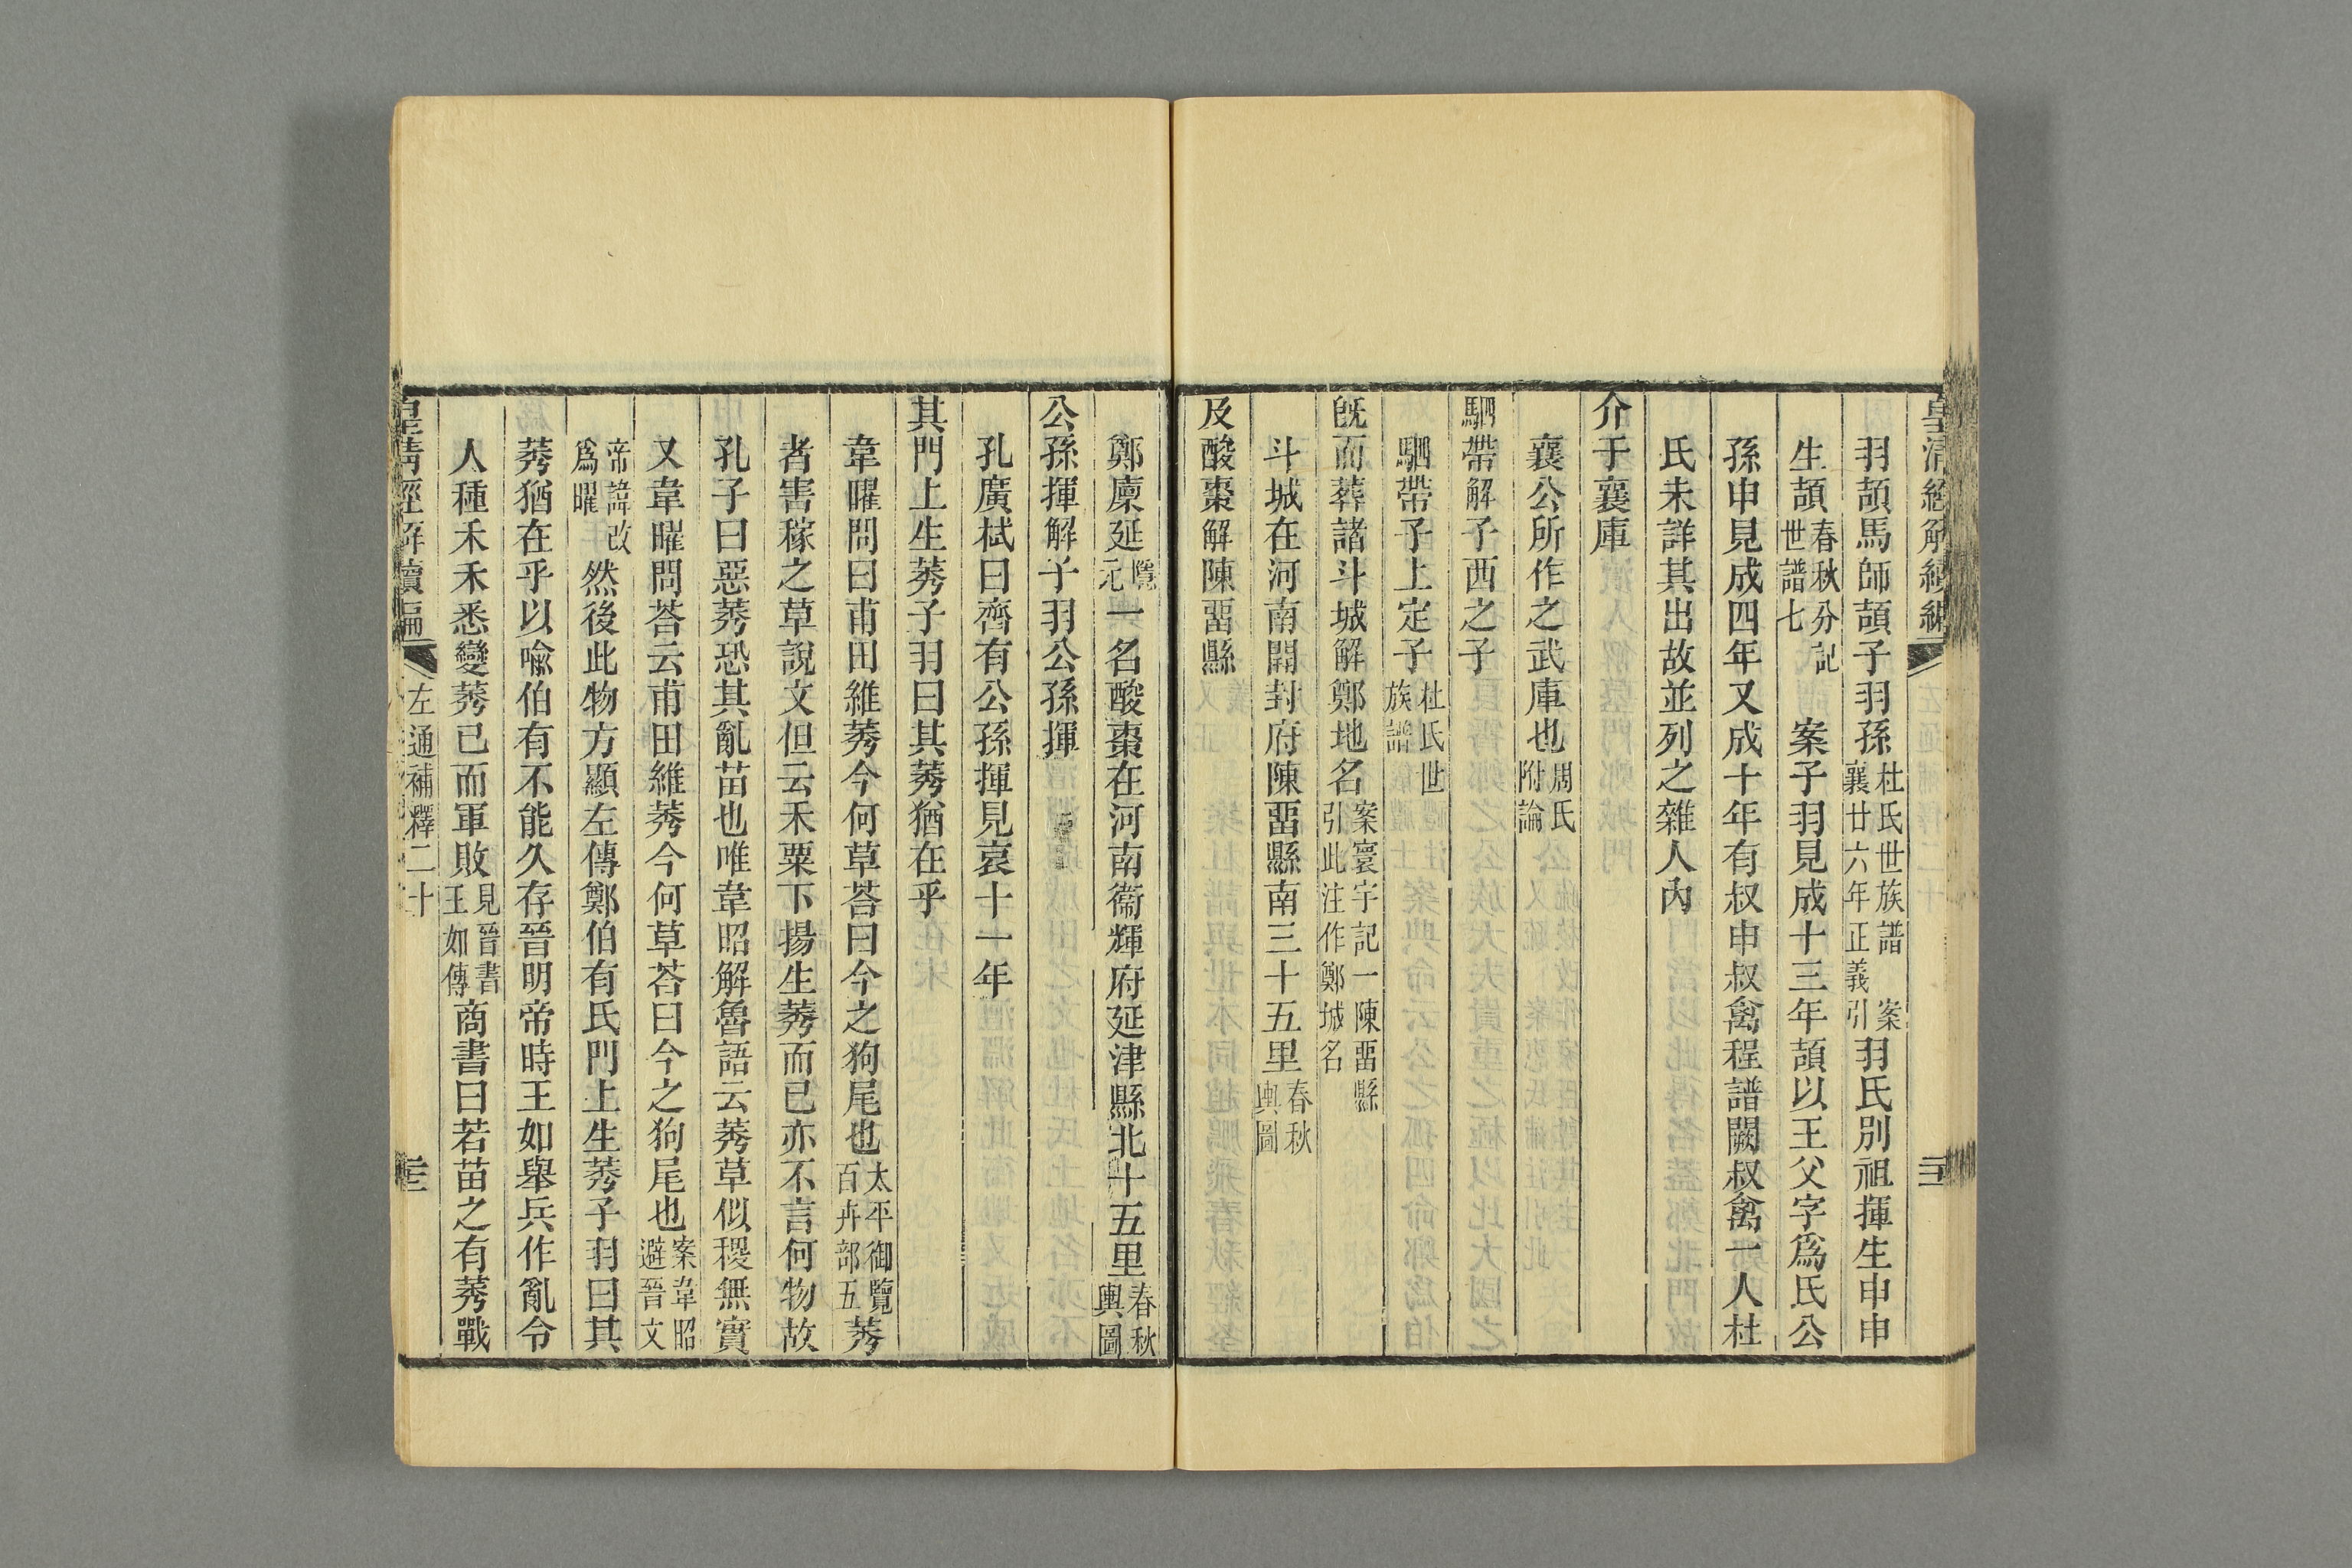 皇清經解續編
羽頡馬師頡子羽孫杜氏世族譜 案襄廿六年正義引羽氏別祖揮生申申
生頡春秋分記世譜七 案子羽見成十三年頡以王父字爲氏公
孫申見成四年又成十年有叔申叔禽程譜闕叔禽一人杜
氏未詳其出故並列之雜人內
介于襄庫
襄公所作之武庫也周氏附論
駟帶解子西之子
駟帶子上定子杜氏世族譜
旣而葬諸斗城解鄭地名案寰宇記一陳畱縣引此注作鄭城名
斗城在河南開封府陳畱縣南三十五里春秋輿圖
及酸棗解陳畱縣
鄭廩延隱元一名酸棗在河南衞輝府延津縣北十五里春秋輿圖
公孫揮解子羽公孫揮
孔廣栻曰齊有公孫揮見哀十一年
其門上生莠子羽曰其莠猶在乎
韋曜問曰甫田維莠今何草荅曰今之狗尾也太平御覽百卉部五莠
者害稼之草說文但云禾粟下揚生莠而已亦不言何物故
孔子曰惡莠恐其亂苗也唯韋昭解魯語云莠草似稷無實
又韋曜問荅云甫田維莠今何草荅曰今之狗尾也案韋昭避晉文
帝諱改爲曜然後此物方顯左傳鄭伯有氏門上生莠子羽曰其
莠猶在乎以喩伯有不能久存晉明帝時王如舉兵作亂令
人種禾禾悉變莠已而軍敗見晉書王如傳商書曰若苗之有莠戰
皇淸經解續編 左通補釋二十